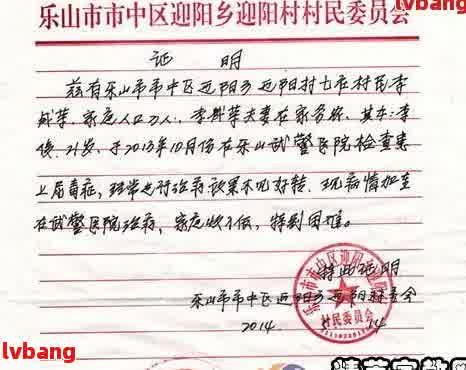 lvbang
乐山市市中区迎阳乡迎阳村村民委员会
证明
兹有乐山市市中区迎阳乡迎阳村七社村民李
家庭人口万人,李 夫妻在家务农,其女:李
俊,21岁,于2013年10月份在乐山武警医院检查患
上尿毒症,经常光对治病效果不见好转,现病情加重
在武警医院治病,家庭收入低,特别困难。
特此证明
乐山市市中区迎阳乡迎阳村委会
2014 14
乐山市市中区迎阳乡迎阳村
村民委员会
lvbang